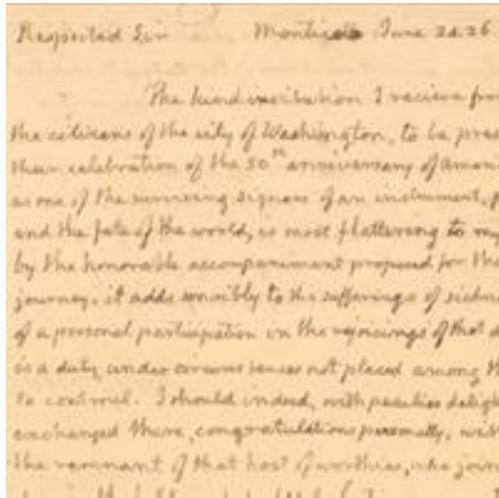 Respected Sir Monticello June 24. 26
The kind invitation I recieve from
the citizens of the city of Washington, to be pres
their celebration of the 50th anniversary of Ameri
as one of the surviving signers of an instrument, p
and the fate of the world, is most flattering to my
by the honorable accompaniment proposed for the
journey. it adds sensibly to the sufferings of sickne
of a personal participation in the rejoicings of that d
is a duty, under circumstances not placed among th
to controul. I should indeed, with peculiar deligh
exchanged there, congratulations personally, with
the remnant of that host of worthies, who join